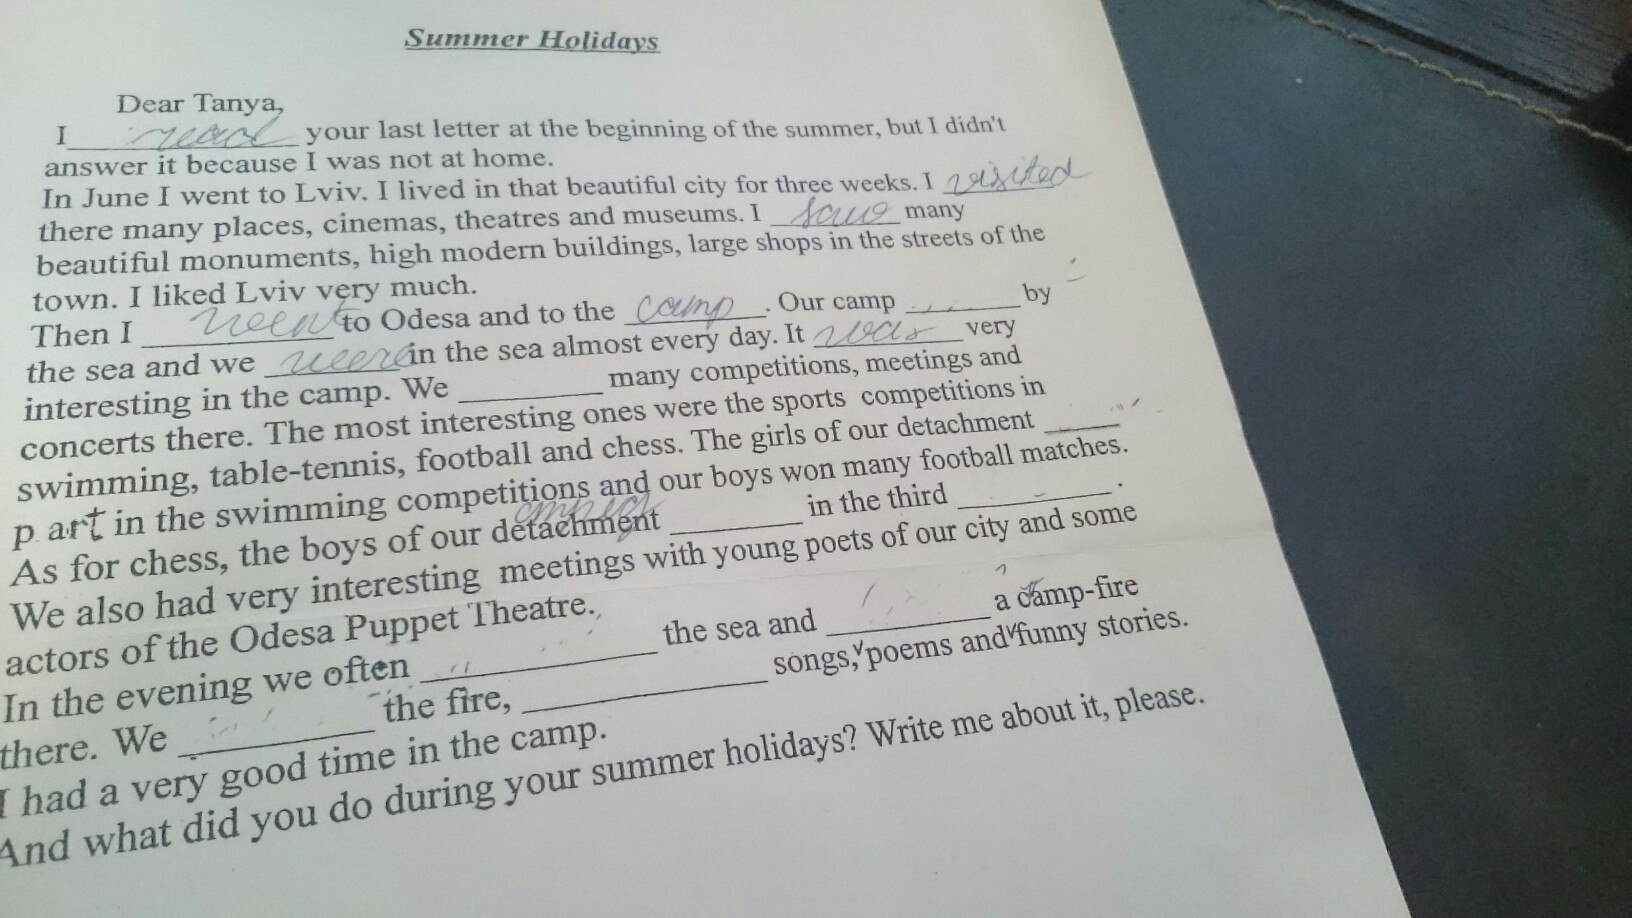 Summer Holidays
Dear Tanya,
I read your last letter at the beginning of the summer, but I didn't
answer it because I was not at home.
In June I went to Lviv. I lived in that beautiful city for three weeks. I visited
there many places, cinemas, theatres and museums. I saw many
beautiful monuments, high modern buildings, large shops in the streets of the
town. I liked Lviv very much.
Then I went to Odesa and to the camp. Our camp ______ by
the sea and we were in the sea almost every day. It was very
interesting in the camp. We ______ many competitions, meetings and
concerts there. The most interesting ones were the sports competitions in
swimming, table-tennis, football and chess. The girls of our detachment ______
part in the swimming competitions and our boys won many football matches.
As for chess, the boys of our detachment ______ in the third ______.
We also had very interesting meetings with young poets of our city and some
actors of the Odesa Puppet Theatre.
In the evening we often ______ the sea and ______ a camp-fire
there. We ______ the fire, ______ songs, poems and funny stories.
I had a very good time in the camp.
And what did you do during your summer holidays? Write me about it, please.